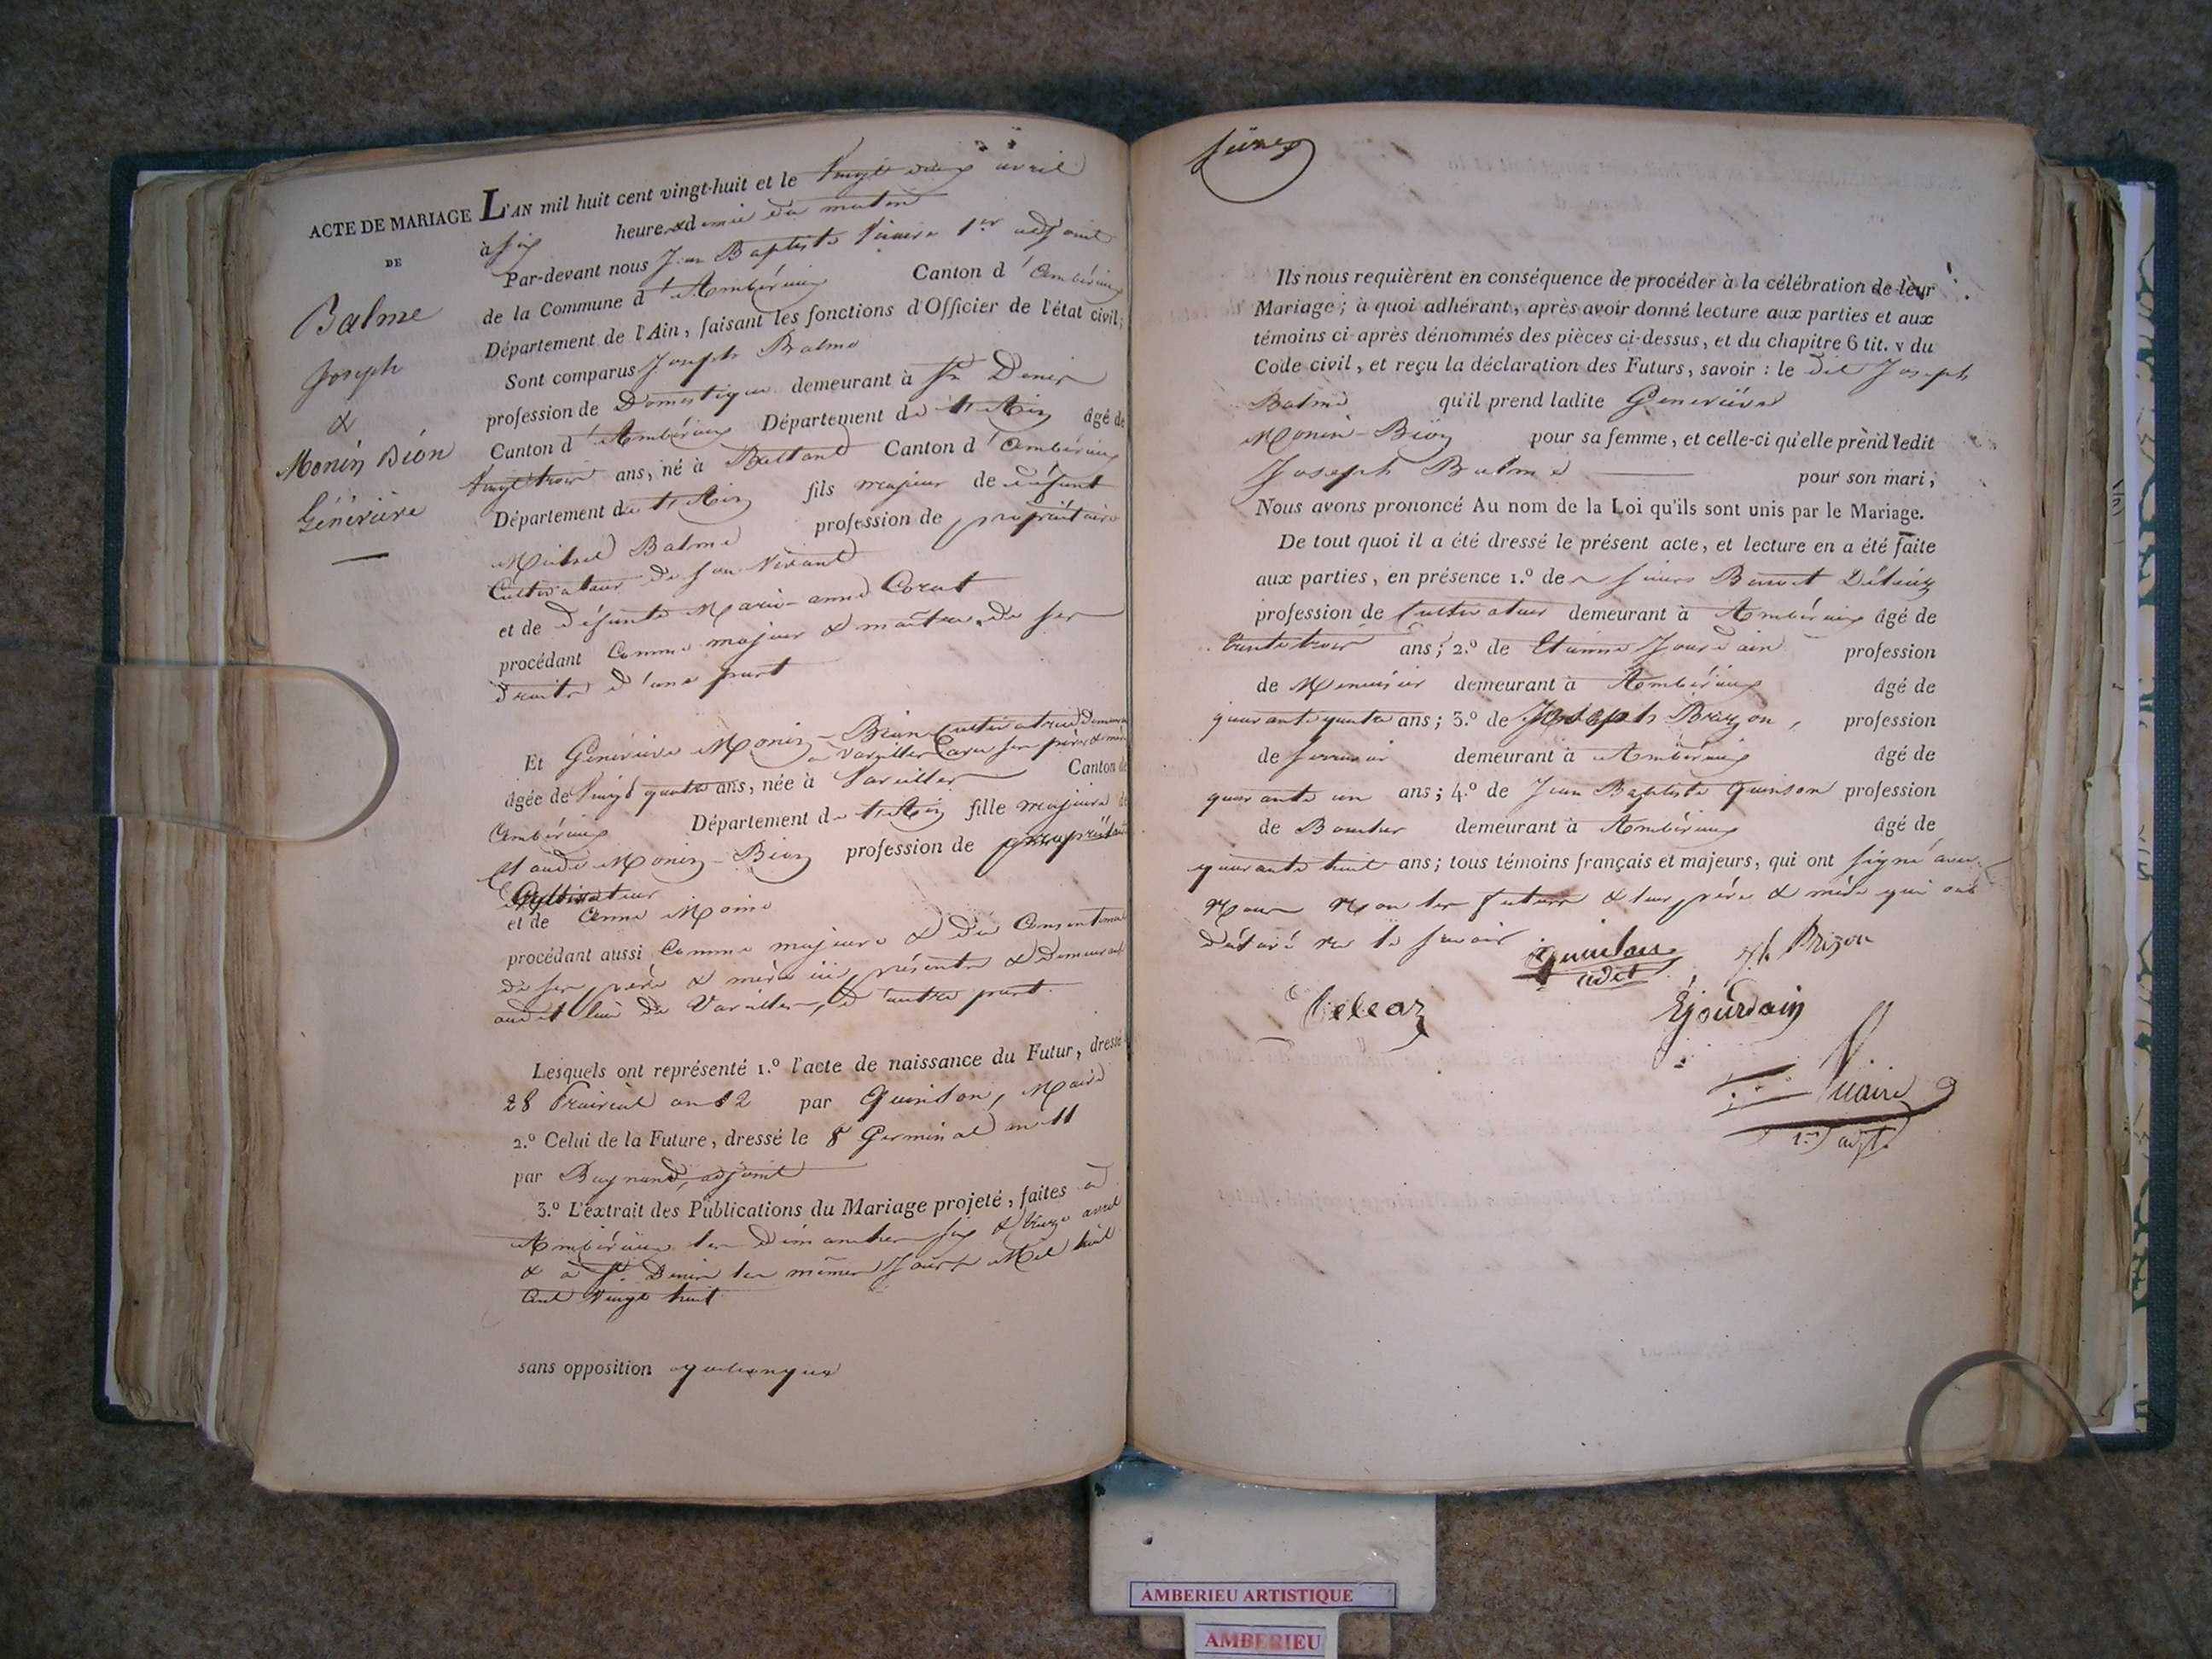 ACTE DE MARIAGE
DE
Balme
Joseph
&
Monin Bión
Généviève
L'AN mil huit cent vingt-huit et le Vingt deux avril
à six heures & demie du matin
Par-devant nous Jean Baptiste Vicaire 1er adjoint
de la Commune d'Ambérieux Canton d'Ambérieux
Département de l'Ain, faisant les fonctions d'Officier de l'état civil;
Sont comparus Joseph Balme
profession de Domestique demeurant à St Denis
Canton d'Ambérieux Département de l'Ain âgé de
Vingt trois ans, né à Canton d'Ambérieux
Département de l'Ain fils majeur de défunt
Balme profession de propriétaire
Cultivateur de son Vivant
et de défunte Marie-anne
procédant Comme majeur & maître de ses
droits d'une part
Et Généviève Monin-Bion Cultivatrice Demeurant
à Vareilles avec ses père & mère
âgée de Vingt quatre ans, née à Vareilles Canton de
Ambérieux Département de l'Ain fille majeure de
Claude Monin-Bion profession de propriétaire
Cultivateur
et de Anne Moine
procédant aussi Comme majeure & du Consentement
de ses père & mère ici présents & Demeurant
audit lieu de Vareilles, d'autre part.
Lesquels ont représenté 1.º l'acte de naissance du Futur, dressé
28 Prairial an 12 par Quinson, Maire
2.º Celui de la Future, dressé le 8 Germinal an 11
par adjoint
3.º L'extrait des Publications du Mariage projeté, faites à
Ambérieux les Dimanches six & treize avril
& à St. Denis les mêmes Jours Mil huit
Cent Vingt huit
sans opposition quelconque
Ils nous requièrent en conséquence de procéder à la célébration de leur
Mariage; à quoi adhérant, après avoir donné lecture aux parties et aux
témoins ci-après dénommés des pièces ci-dessus, et du chapitre 6 tit. v du
Code civil, et reçu la déclaration des Futurs, savoir : le dit Joseph
Balme qu'il prend ladite Geneviève
Monin-Bion pour sa femme, et celle-ci qu'elle prend ledit
Joseph Balme pour son mari;
Nous avons prononcé Au nom de la Loi qu'ils sont unis par le Mariage.
De tout quoi il a été dressé le présent acte, et lecture en a été faite
aux parties, en présence 1.º de Benoit
profession de Cultivateur demeurant à Ambérieux âgé de
trente trois ans; 2.º de Etienne Jourdain profession
de Menuisier demeurant à Ambérieux âgé de
quarante quatre ans; 3.º de Joseph Brizon, profession
de serrurier demeurant à Ambérieux âgé de
quarante un ans; 4.º de Jean Baptiste Quinson profession
de Boucher demeurant à Ambérieux âgé de
quarante huit ans; tous témoins français et majeurs, qui ont signé avec
Nous Non les futurs & leurs père & mère qui ont
déclaré ne le savoir
Brizon
EJourdain
Vicaire
1er adjt
AMBERIEU ARTISTIQUE
AMBERIEU